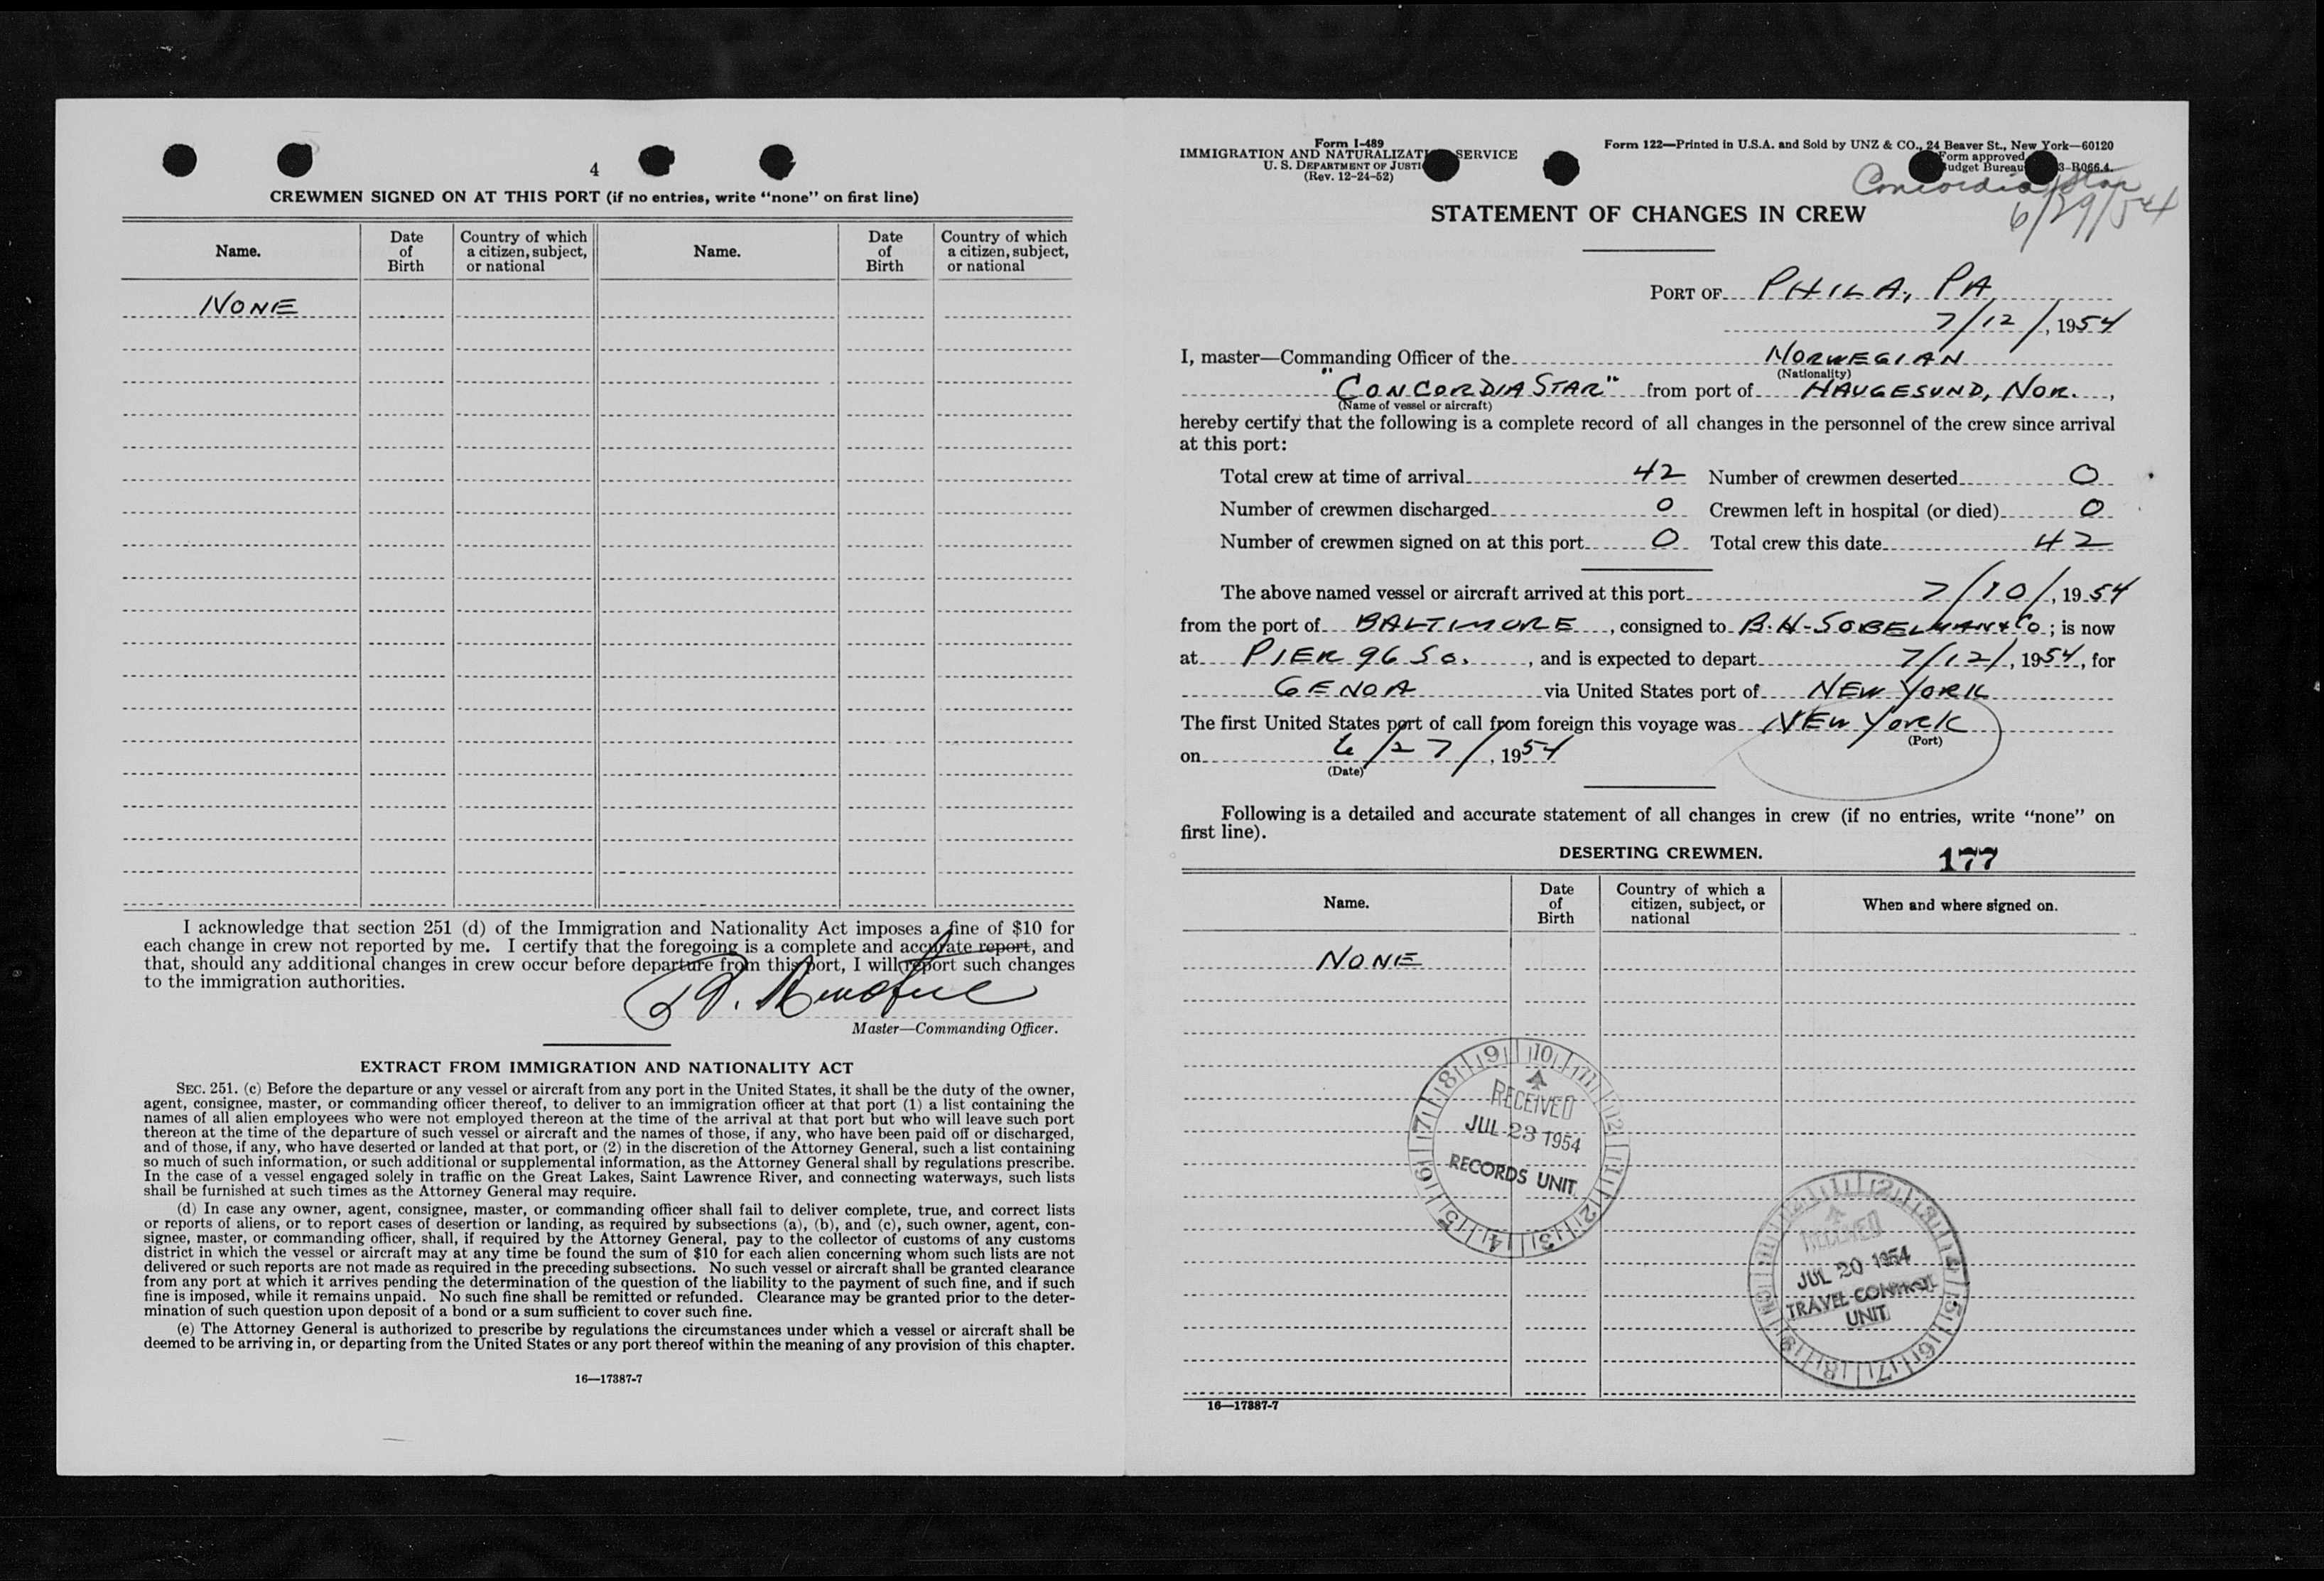 4
CREWMEN SIGNED ON AT THIS PORT (if no entries, write "none" on first line)
Name. Date of Birth Country of which a citizen, subject, or national Name. Date of Birth Country of which a citizen, subject, or national
NONE
I acknowledge that section 251 (d) of the Immigration and Nationality Act imposes a fine of $10 for
each change in crew not reported by me. I certify that the foregoing is a complete and accurate report, and
that, should any additional changes in crew occur before departure from this port, I will report such changes
to the immigration authorities.
Master—Commanding Officer.
EXTRACT FROM IMMIGRATION AND NATIONALITY ACT
SEC. 251. (c) Before the departure or any vessel or aircraft from any port in the United States, it shall be the duty of the owner,
agent, consignee, master, or commanding officer thereof, to deliver to an immigration officer at that port (1) a list containing the
names of all alien employees who were not employed thereon at the time of the arrival at that port but who will leave such port
thereon at the time of the departure of such vessel or aircraft and the names of those, if any, who have been paid off or discharged,
and of those, if any, who have deserted or landed at that port, or (2) in the discretion of the Attorney General, such a list containing
so much of such information, or such additional or supplemental information, as the Attorney General shall by regulations prescribe.
In the case of a vessel engaged solely in traffic on the Great Lakes, Saint Lawrence River, and connecting waterways, such lists
shall be furnished at such times as the Attorney General may require.
(d) In case any owner, agent, consignee, master, or commanding officer shall fail to deliver complete, true, and correct lists
or reports of aliens, or to report cases of desertion or landing, as required by subsections (a), (b), and (c), such owner, agent, con-
signee, master, or commanding officer, shall, if required by the Attorney General, pay to the collector of customs of any customs
district in which the vessel or aircraft may at any time be found the sum of $10 for each alien concerning whom such lists are not
delivered or such reports are not made as required in the preceding subsections. No such vessel or aircraft shall be granted clearance
from any port at which it arrives pending the determination of the question of the liability to the payment of such fine, and if such
fine is imposed, while it remains unpaid. No such fine shall be remitted or refunded. Clearance may be granted prior to the deter-
mination of such question upon deposit of a bond or a sum sufficient to cover such fine.
(e) The Attorney General is authorized to prescribe by regulations the circumstances under which a vessel or aircraft shall be
deemed to be arriving in, or departing from the United States or any port thereof within the meaning of any provision of this chapter.
16—17387-7
Form I-489
IMMIGRATION AND NATURALIZATI SERVICE
U. S. DEPARTMENT OF JUSTI
(Rev. 12-24-52)
Form 122—Printed in U.S.A. and Sold by UNZ & CO., 24 Beaver St., New York—60120
Form approved
udget Bureau 3-R066.4.
Concordia Star
6/29/54
STATEMENT OF CHANGES IN CREW
PORT OF PHILA, PA
7/12/, 1954
I, master—Commanding Officer of the NORWEGIAN
(Nationality)
"CONCORDIA STAR" from port of HAUGESUND, NOR.,
(Name of vessel or aircraft)
hereby certify that the following is a complete record of all changes in the personnel of the crew since arrival
at this port:
Total crew at time of arrival 42 Number of crewmen deserted 0
Number of crewmen discharged 0 Crewmen left in hospital (or died) 0
Number of crewmen signed on at this port 0 Total crew this date 42
The above named vessel or aircraft arrived at this port 7/10/, 1954
from the port of BALTIMORE, consigned to B.H. SOBELMAN & CO; is now
at PIER 96 SO., and is expected to depart 7/12/, 1954, for
GENOA via United States port of NEW YORK
The first United States port of call from foreign this voyage was NEW YORK
(Port)
on 6/27/, 1954
(Date)
Following is a detailed and accurate statement of all changes in crew (if no entries, write "none" on
first line).
DESERTING CREWMEN. 177
Name. Date of Birth Country of which a citizen, subject, or national When and where signed on.
NONE
9 10 11 12 1 2 3 4 5 6 7 8
RECEIVED
JUL 23 1954
RECORDS UNIT
RECEIVED
JUL 20 1954
TRAVEL CONTROL
UNIT
16—17387-7